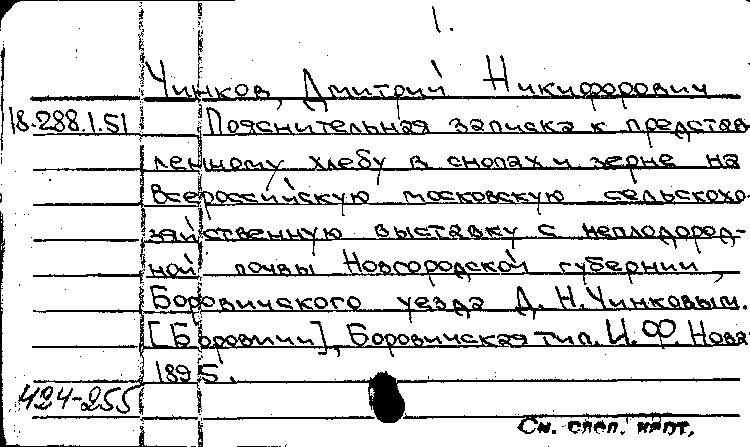 1.
Чинков, Дмитрий Никифорович
18.288.1.51 Пояснительная записка к представ
ленному хлебу в снопах и зерне на
Всероссийскую московскую сельскохо-
зяйственную выставку с неплодород-
ной почвы Новгородской губернии,
Боровичского уезда Д. Н. Чинковым.
[Боровичи], Боровичская тип. И. Ф. Нова
1895.
424-255
См. след. карт.